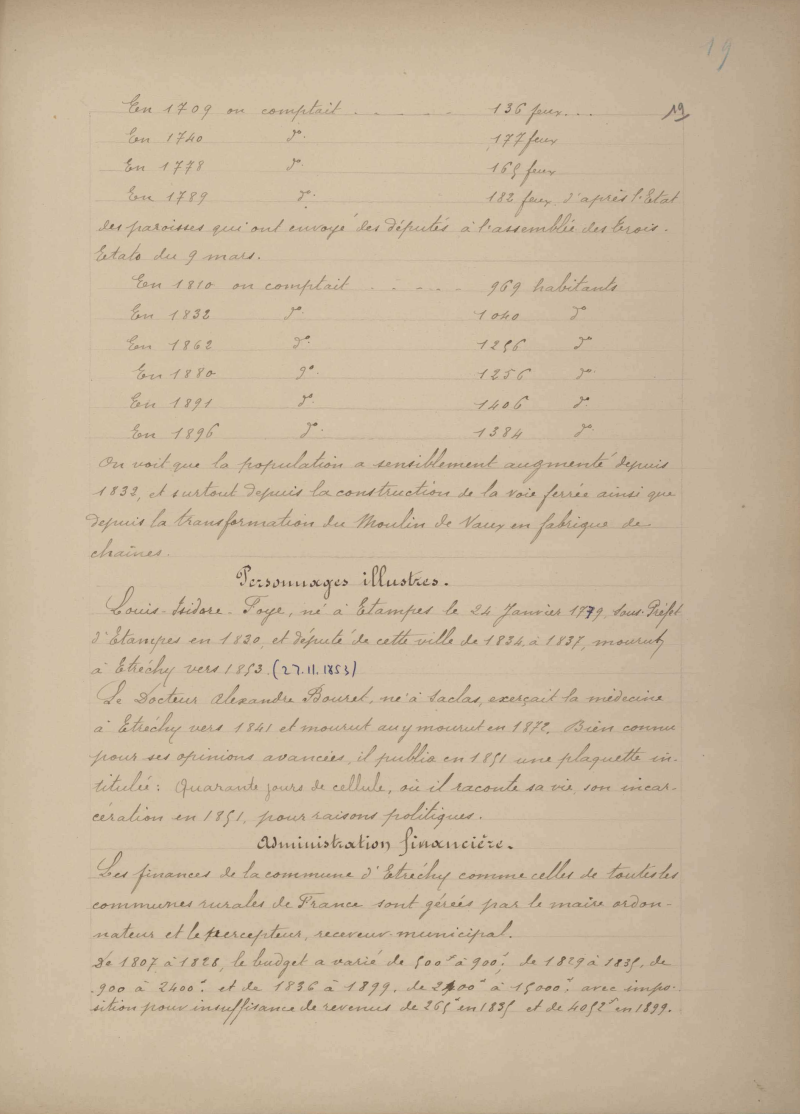 19
En 1709 on comptait . - - - - 136 feux... 19
En 1740 do. 177 feux
En 1778 do. 165 feux
En 1789 do. 182 feux, d'après l'Etat
des paroisses qui ont envoyé des députés à l'assemblée des Trois-
Etats du 9 mars.
En 1810 on comptait . - - - - 969 habitants
En 1832 do. 1040 do
En 1862 do. 1256 do
En 1880 do. 1256 do.
En 1891 do. 1406 do.
En 1896 do. 1384 do.
On voit que la population a sensiblement augmenté depuis
1832, et surtout depuis la construction de la voie ferrée ainsi que
depuis la transformation du Moulin de Vaux en fabrique de
chaînes.
Personnages illustres.
Louis-Isidore-Foye, né à Etampes le 24 Janvier 1779, sous-Préfet
d'Etampes en 1830, et député de cette ville de 1834 à 1837, mourut
à Etréchy vers 1853. (27.11.1853)
Le Docteur Alexandre Bouret, né à Saclas, exerçait la médecine
à Etréchy vers 1841 et mourut au y mourut en 1872. Bien connu
pour ses opinions avancées, il publia en 1851 une plaquette in-
titulée: Quarante jours de cellule, où il raconte sa vie, son incar-
cération en 1851, pour raisons politiques.
Administration financière.
Les finances de la commune d'Etréchy comme celles de toutes les
communes rurales de France sont gérées par le maire ordon-
nateur et le percepteur, receveur municipal.
De 1807 à 1828, le budget a varié de 500f à 900f, de 1829 à 1835, de
900 à 2400f. et de 1836 à 1899. de 2400f à 15000f. avec impo-
sition pour insuffisance de revenus de 265f en 1835 et de 4052f en 1899.